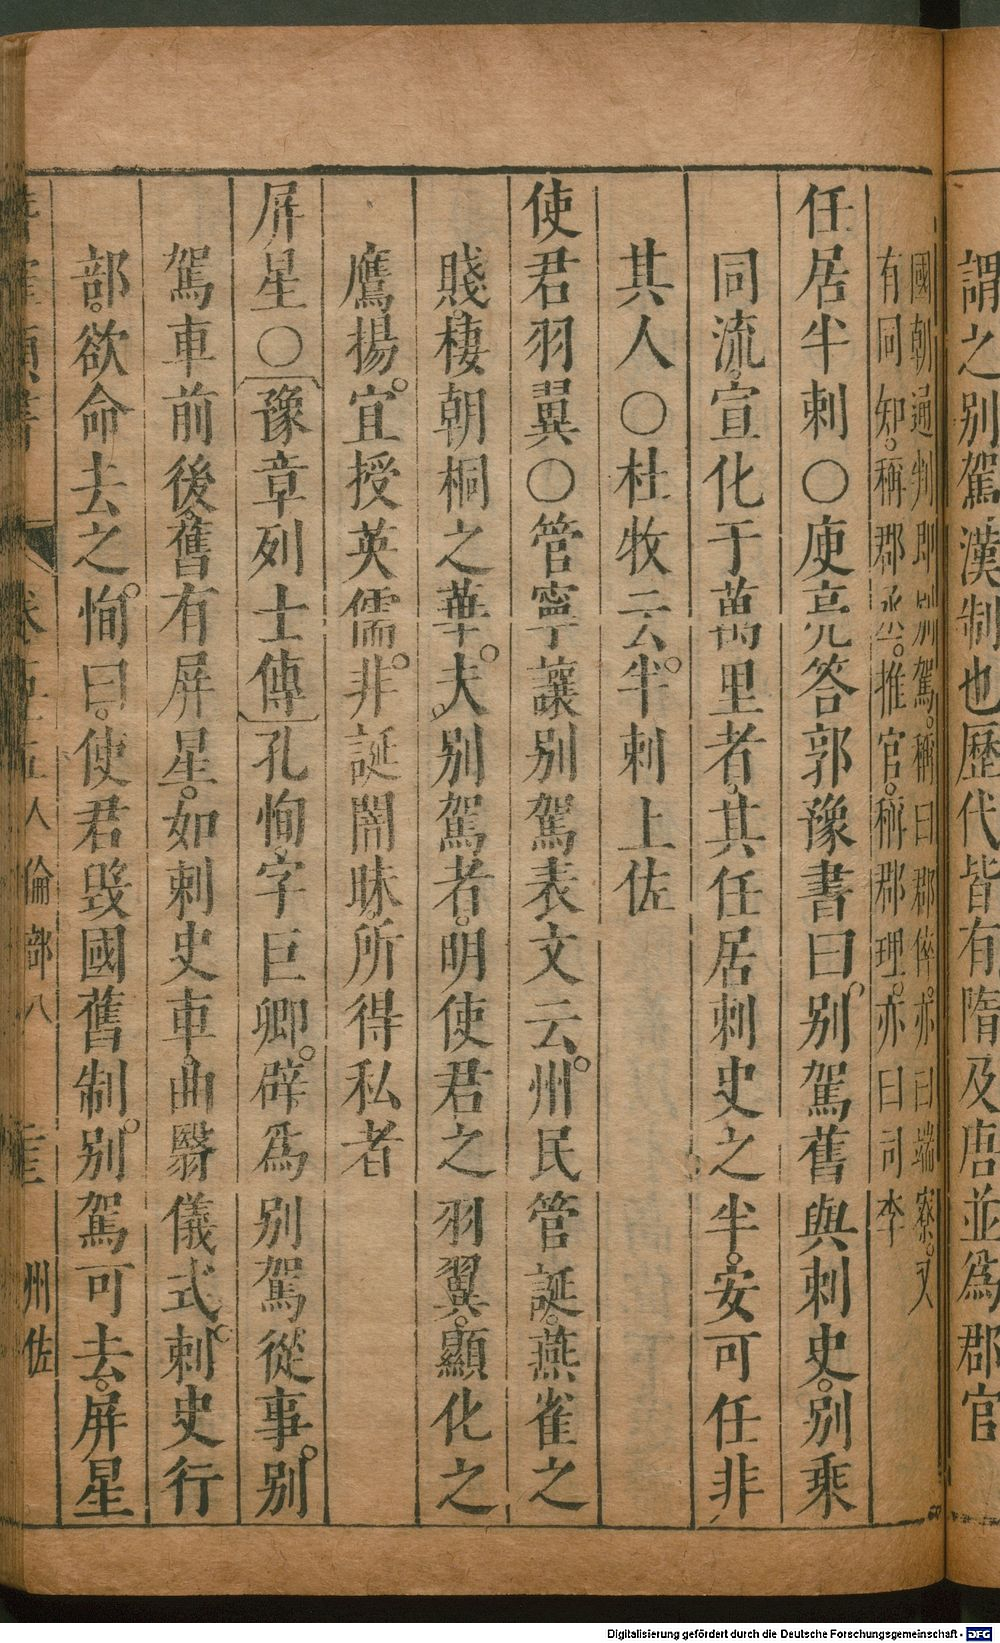 謂之别駕漢制也歷代皆有隋及唐並爲郡官
國朝通判即别駕。稱曰郡倅。亦曰端寮。又
有同知。稱郡丞。推官。稱郡理。亦曰司李
任居半刺○庾亮答郭豫書曰。别駕舊與刺史。别乘
同流。宣化于萬里者。其任居刺史之半。安可任非
其人○杜牧云。半刺上佐
使君羽翼○管寧讓别駕表文云。州民管誕。燕雀之
賤。棲朝桐之華。夫。别駕者。明使君之羽翼。顯化之
鷹揚。宜授英儒。非誕闇昧。所得私者
屏星○〔豫章列士傳〕孔恂。字巨卿。辟爲别駕從事。别
駕車前後。舊有屏星。如刺史車。曲翳儀式。刺史行
部。欲命去之。恂曰。使君毀國舊制。别駕可去。屏星
人倫部八
州佐
Digitalisierung gefördert durch die Deutsche Forschungsgemeinschaft - DFG